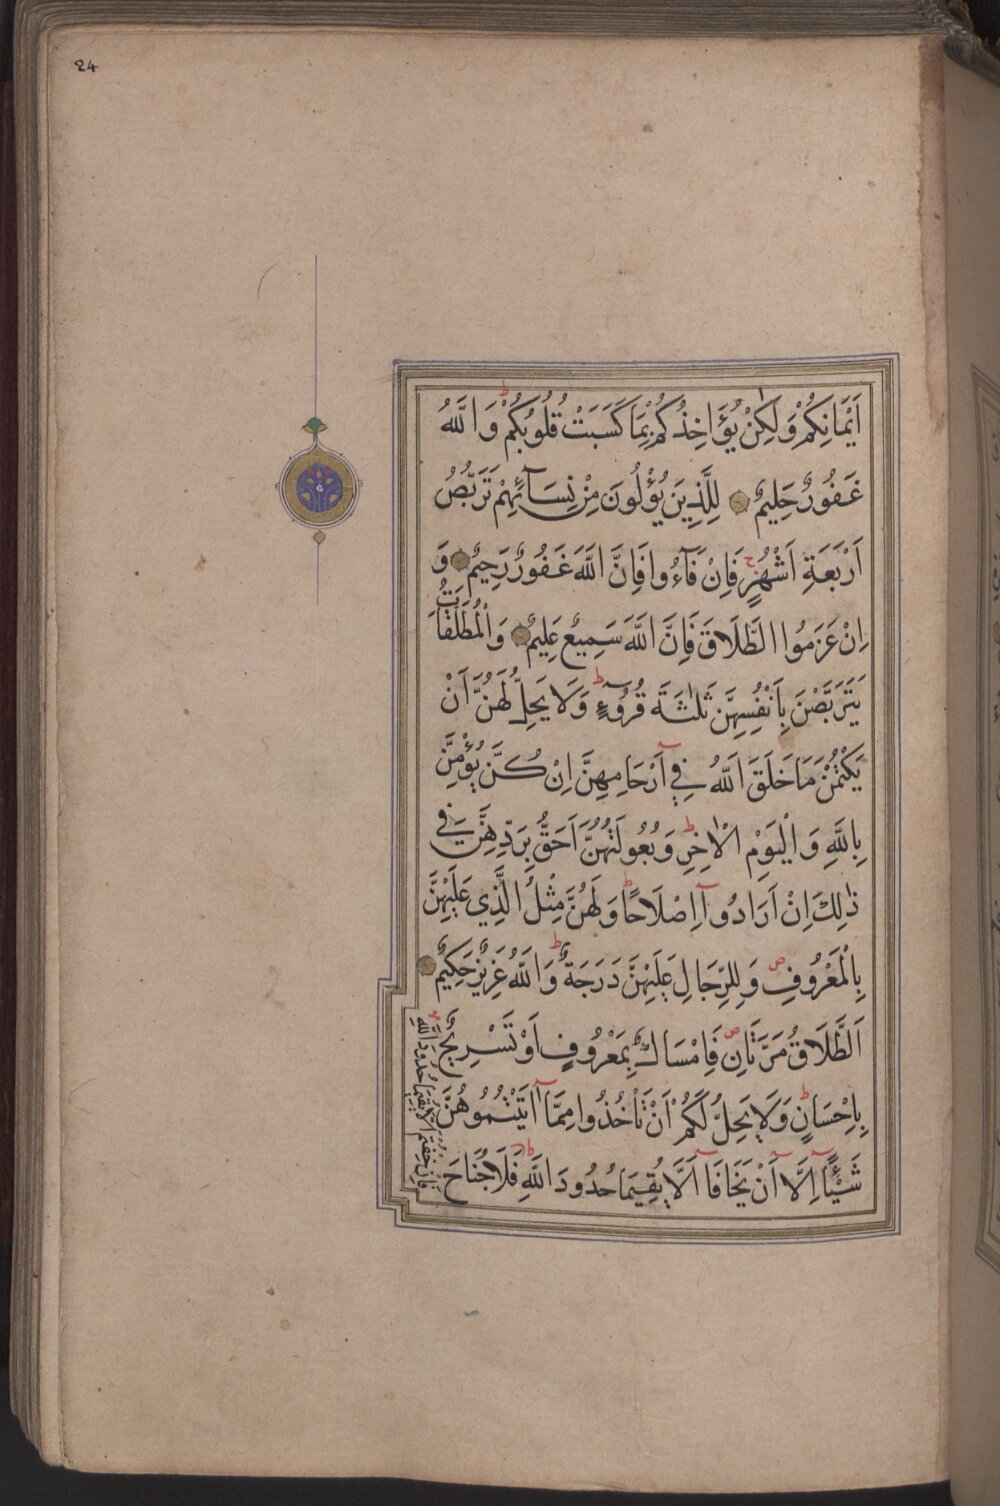 24
اَيْمَانِكُمْ وَلٰكِنْ يُؤَاخِذُكُمْ بِمَا كَسَبَتْ قُلُوبُكُمْ ط وَاللّٰهُ
غَفُورٌ حَلِيمٌ لِلَّذِينَ يُؤْلُونَ مِنْ نِسَآئِهِمْ تَرَبُّصُ
اَرْبَعَةِ اَشْهُرٍ ج فَاِنْ فَآءُوا فَاِنَّ اللّٰهَ غَفُورٌ رَحِيمٌ وَ
اِنْ عَزَمُوا الطَّلَاقَ فَاِنَّ اللّٰهَ سَمِيعٌ عَلِيمٌ وَالْمُطَلَّقَاتُ
يَتَرَبَّصْنَ بِاَنْفُسِهِنَّ ثَلٰثَةَ قُرُوٓءٍ ط وَلَا يَحِلُّ لَهُنَّ اَنْ
يَكْتُمْنَ مَا خَلَقَ اللّٰهُ فِيٓ اَرْحَامِهِنَّ اِنْ كُنَّ يُؤْمِنَّ
بِاللّٰهِ وَالْيَوْمِ الْاٰخِرِ ط وَبُعُولَتُهُنَّ اَحَقُّ بِرَدِّهِنَّ فِي
ذٰلِكَ اِنْ اَرَادُوٓا اِصْلَاحًا ط وَلَهُنَّ مِثْلُ الَّذِي عَلَيْهِنَّ
بِالْمَعْرُوفِ ص وَلِلرِّجَالِ عَلَيْهِنَّ دَرَجَةٌ ط وَاللّٰهُ عَزِيزٌ حَكِيمٌ
اَلطَّلَاقُ مَرَّتَانِ ص فَاِمْسَاكٌ بِمَعْرُوفٍ اَوْ تَسْرِيحٌ
بِاِحْسَانٍ ط وَلَا يَحِلُّ لَكُمْ اَنْ تَأْخُذُوا مِمَّآ اٰتَيْتُمُوهُنَّ
شَيْئًا اِلَّآ اَنْ يَخَافَآ اَلَّا يُقِيمَا حُدُودَ اللّٰهِ ط فَلَا جُنَاحَ
فَاِنْ خِفْتُمْ اَلَّا يُقِيمَا حُدُودَ اللّٰهِ